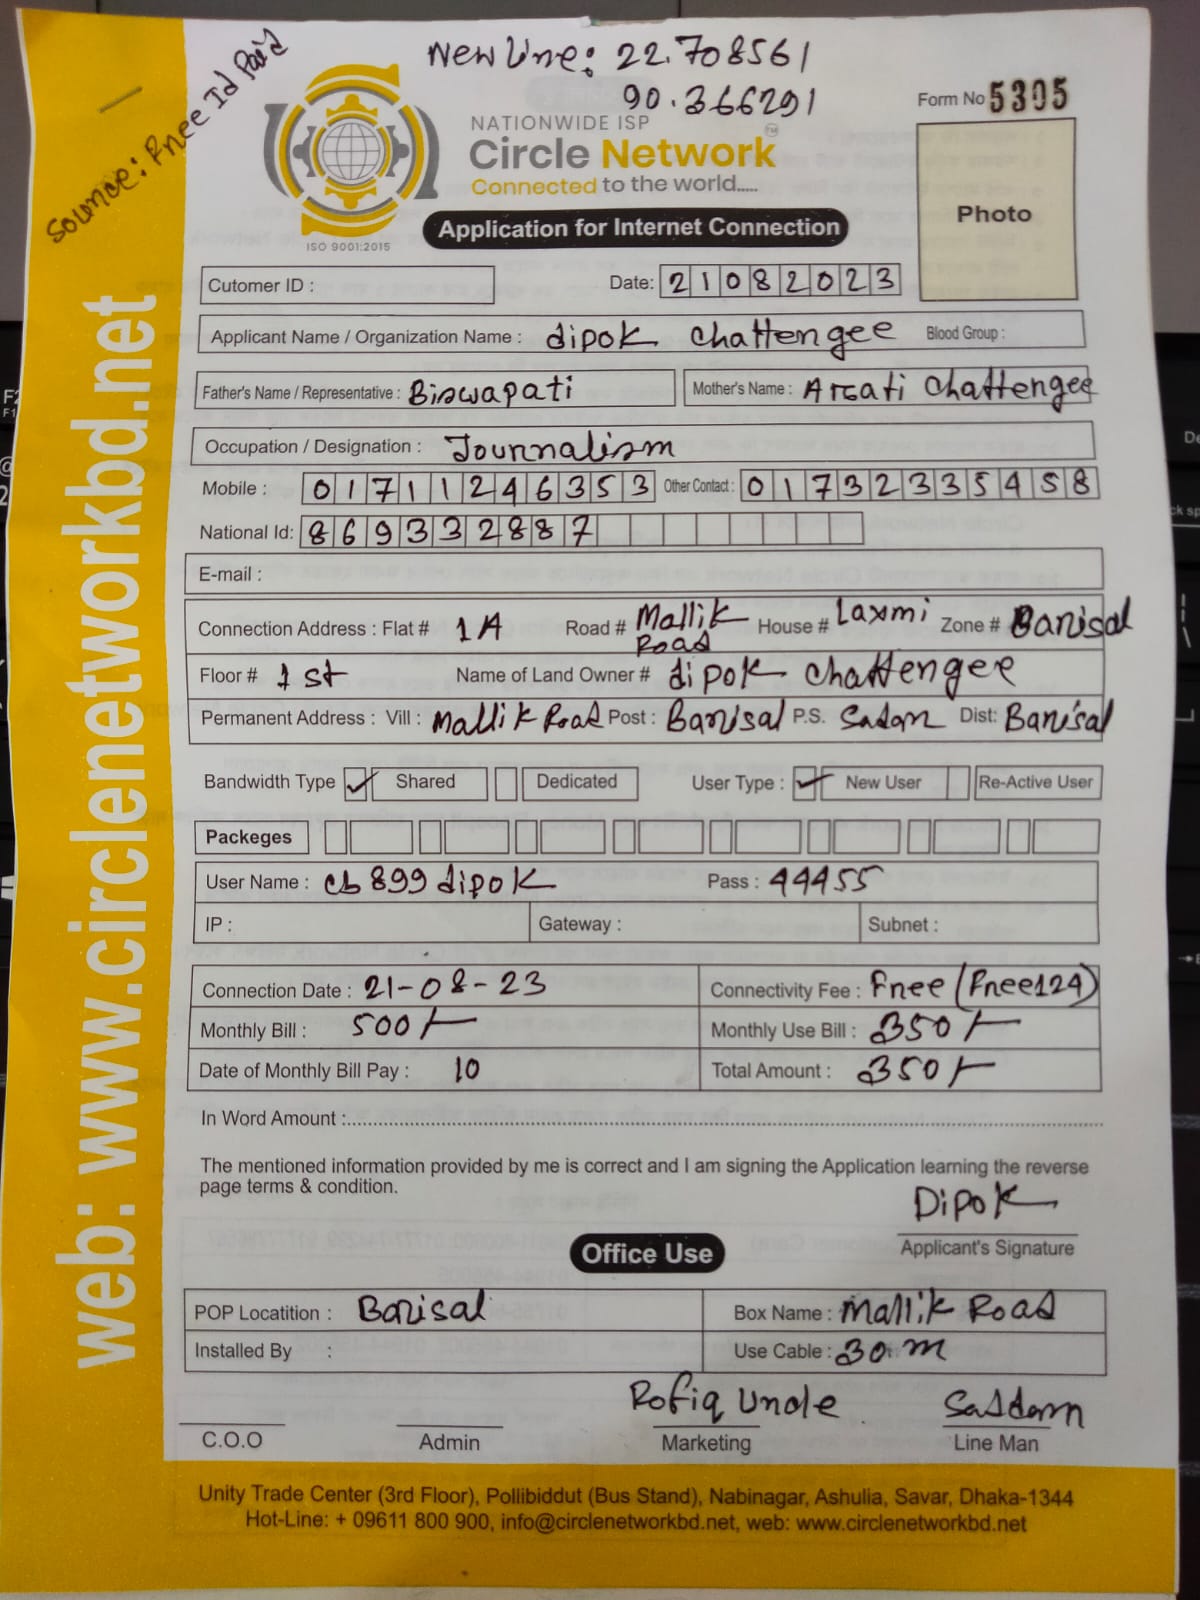 New Line: 22.708561
90.366291
Source: Free Id Paid
Form No 5305
NATIONWIDE ISP
Circle Network™
Connected to the world.....
ISO 9001:2015
Photo
Application for Internet Connection
Cutomer ID :
Date: 21082023
Applicant Name / Organization Name : dipok chattergee Blood Group :
Father's Name / Representative : Biswapati Mother's Name : Arati Chattergee
Occupation / Designation : Journalism
Mobile : 01711246353 Other Contact : 01732335458
National Id: 869332887
E-mail :
Connection Address : Flat # 1A Road # Mallik Road House # Laxmi Zone # Barisal
Floor # 1st Name of Land Owner # dipok chattergee
Permanent Address : Vill : Mallik Road Post : Barisal P.S. Sadar Dist: Barisal
Bandwidth Type ✓ Shared Dedicated User Type : ✓ New User Re-Active User
Packeges
User Name : cb899dipok Pass : 44455
IP : Gateway : Subnet :
Connection Date : 21-08-23 Connectivity Fee : Free (Free124)
Monthly Bill : 500/- Monthly Use Bill : 350/-
Date of Monthly Bill Pay : 10 Total Amount : 350/-
In Word Amount :
The mentioned information provided by me is correct and I am signing the Application learning the reverse
page terms & condition.
Dipok
Applicant's Signature
Office Use
POP Locatition : Barisal Box Name : Mallik Road
Installed By : Use Cable : 30 m
Rofiq Uncle Saddam
C.O.O Admin Marketing Line Man
Unity Trade Center (3rd Floor), Pollibiddut (Bus Stand), Nabinagar, Ashulia, Savar, Dhaka-1344
Hot-Line: + 09611 800 900, info@circlenetworkbd.net, web: www.circlenetworkbd.net
web: www.circlenetworkbd.net